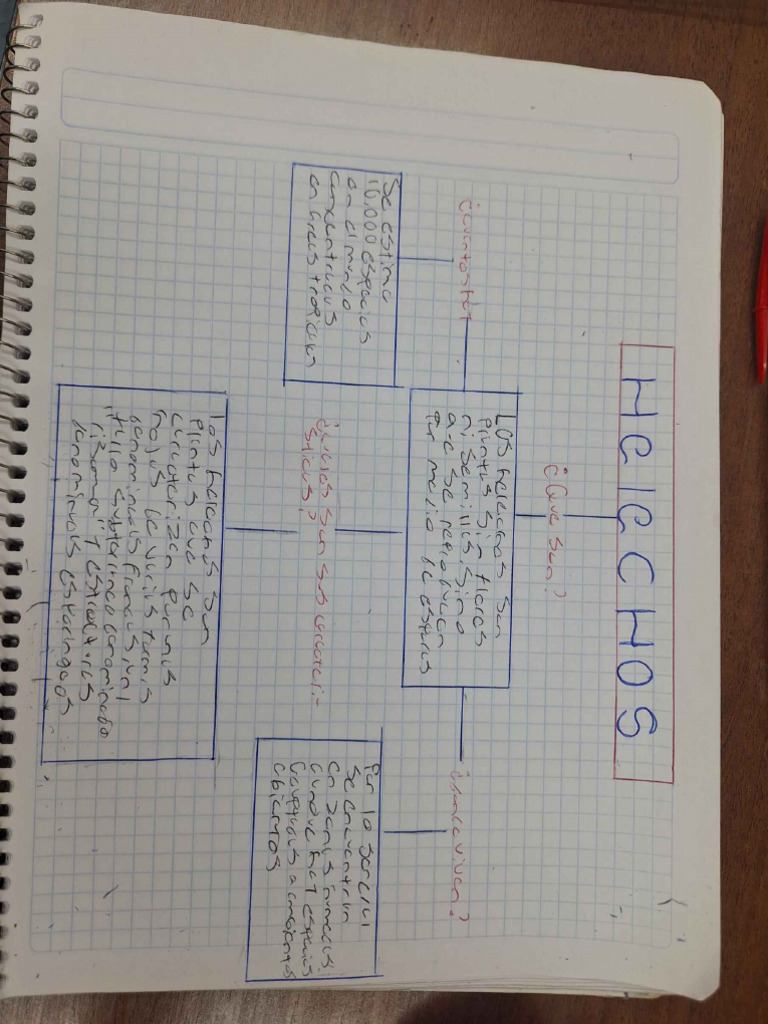 HeleCHOS
¿Que son?
Los helechos son
plantas sin flores
ni semillas. Sino
que se reproducen
por medio de esporas
¿cuantos hay
Se estima
10.000 especies
en el mundo
concentradas
en areas tropicales
¿cuales son sus caracteri-
sticas?
los helechos son
plantas que se
caracterizan por unas
hojas de varias formas
denominadas frondas, un
tallo subterraneo denominado
risoma y estructuras
denominadas esporangeos
¿Donde viven?
Por lo general
se encuentran
en zonas humedas,
aunque hay especies
adaptadas a ambientes
abiertos